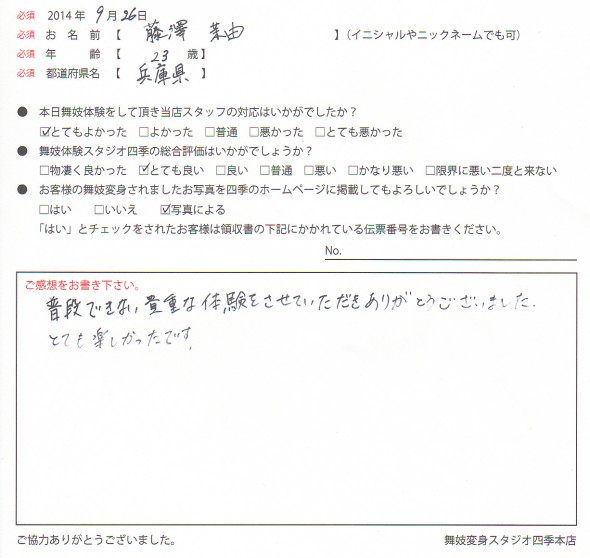 必須 2014年 9月26日
必須 お名前【 藤澤 茉由 】(イニシャルやニックネームでも可)
必須 年齢【 23 歳】
必須 都道府県名【 兵庫県 】
● 本日舞妓体験をして頂き当店スタッフの対応はいかがでしたか？
☑とてもよかった □よかった □普通 □悪かった □とても悪かった
● 舞妓体験スタジオ四季の総合評価はいかがでしょうか？
□物凄く良かった ☑とても良い □良い □普通 □悪い □かなり悪い □限界に悪い二度と来ない
● お客様の舞妓変身されましたお写真を四季のホームページに掲載してもよろしいでしょうか？
□はい □いいえ ☑写真による
「はい」とチェックをされたお客様は領収書の下記にかかれている伝票番号をお書きください。
No.
ご感想をお書き下さい。
普段できない貴重な体験をさせていただきありがとうございました.
とても楽しかったです.
ご協力ありがとうございました。
舞妓変身スタジオ四季本店